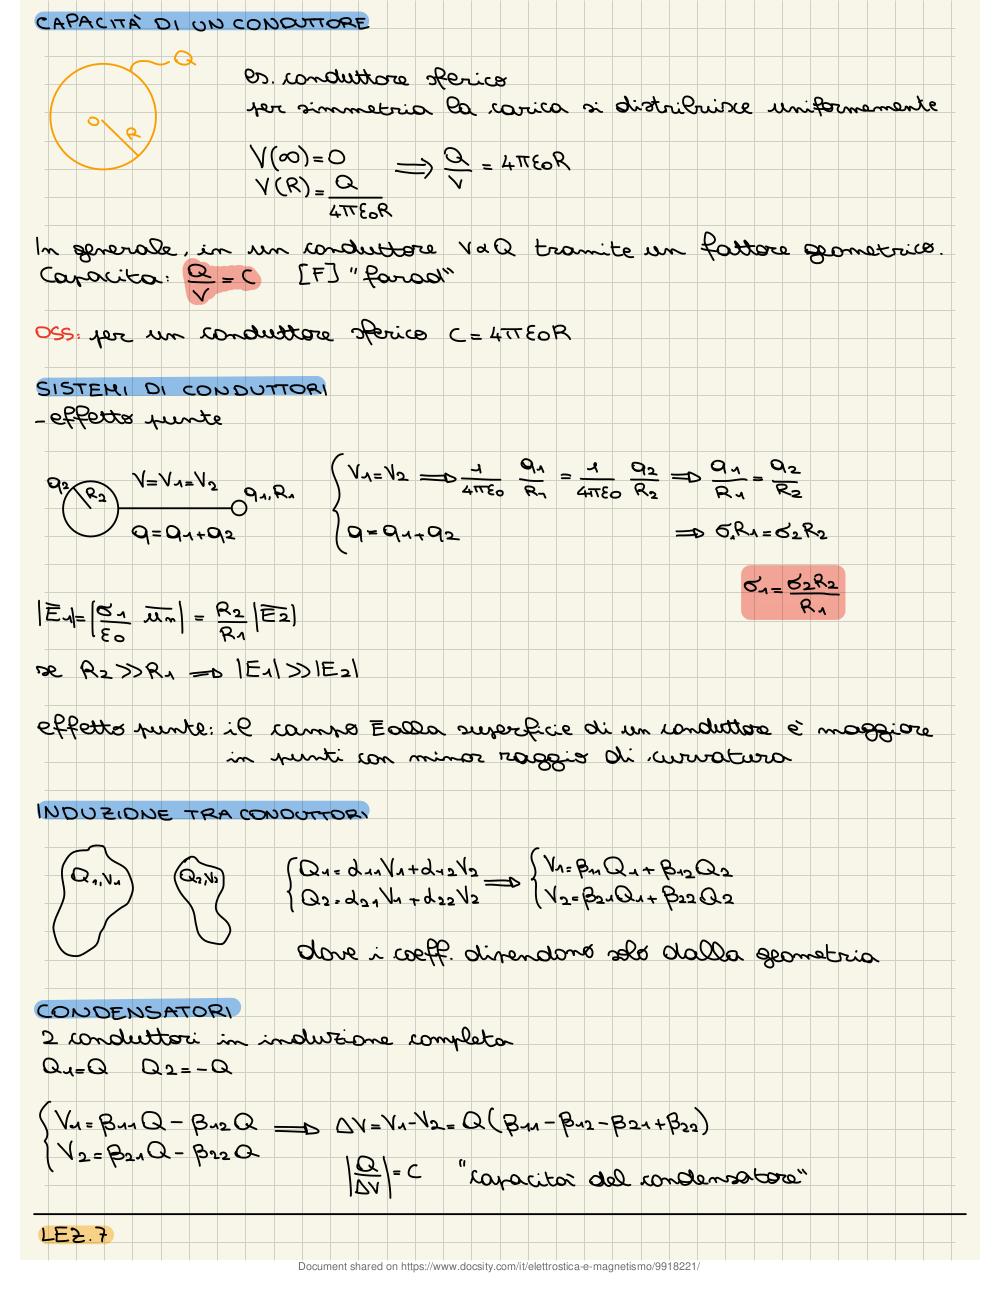 CAPACITÀ DI UN CONDUTTORE
Q
O R
es. conduttore sferico
per simmetria la carica si distribuisce uniformemente
V(∞)=0 ⟹ Q/V = 4πε0R
V(R)= Q/4πε0R
In generale, in un conduttore V∝Q tramite un fattore geometrico.
Capacita: Q/V = C [F] "farad"
OSS: per un conduttore sferico C=4πε0R
SISTEMI DI CONDUTTORI
-effetto punte
q2 R2 V=V1=V2 q1,R1
q=q1+q2
{ V1=V2 ⟹ 1/4πε0 q1/R1 = 1/4πε0 q2/R2 ⟹ q1/R1 = q2/R2
q=q1+q2 ⟹ σ1R1=σ2R2
σ1= σ2R2/R1
|E1|=|σ1/ε0 un| = R2/R1 |E2|
se R2>>R1 ⟹ |E1|>>|E2|
effetto punte: il campo E alla superficie di un conduttore è maggiore
in punti con minor raggio di curvatura
INDUZIONE TRA CONDUTTORI
Q1,V1 Q2,V2
{ Q1=α11V1+α12V2 ⟹ { V1=β11Q1+β12Q2
Q2=α21V1+α22V2 V2=β21Q1+β22Q2
dove i coeff. dipendono solo dalla geometria
CONDENSATORI
2 conduttori in induzione completa
Q1=Q Q2=-Q
{ V1=β11Q-β12Q ⟹ ΔV=V1-V2=Q(β11-β12-β21+β22)
V2=β21Q-β22Q
|Q/ΔV|=C "capacità del condensatore"
LEZ.7
Document shared on https://www.docsity.com/it/elettrostica-e-magnetismo/9918221/